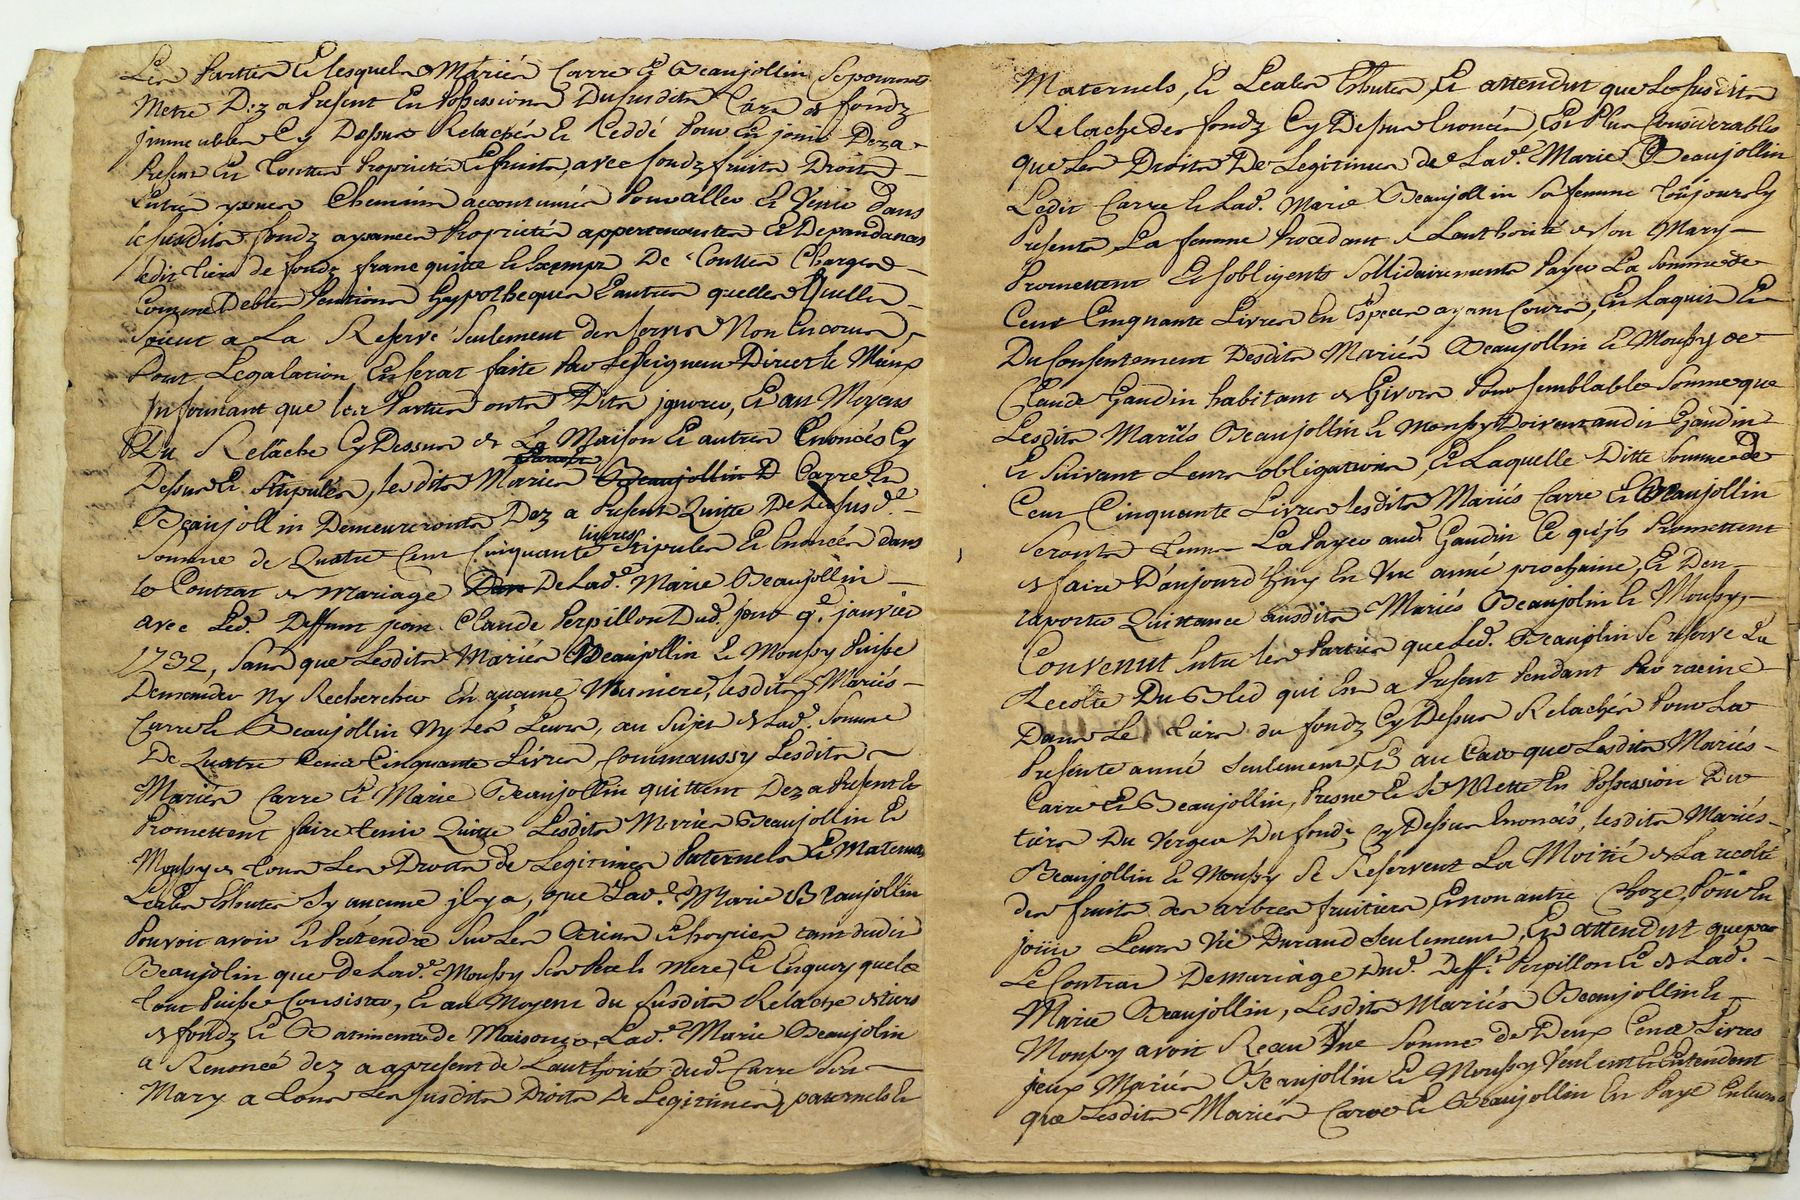 Les Parties Et lesquels Mariés Carre Et Beaujollin Se pourront
Metre Dez a Present En possession Du susdits Tiers de fondz
jmmeubles Cy Dessus Relachés Et Ceddé Pour En jouir Deza-
Present En Toutte Proprieté Et fruits, avec fondz fruits Droits-
Entrés yssues Chemins accoutumés Pour aller Et Venir dans
le susdits fondz aysances Proprietés appertenances Et Depandances
ledit tiers de fondz franc quitte Et Exempt De Touttes Charges-
Comme Debtes Pentions hypotheques Et autres quelles Quelles-
Soient a La Reserve Seulement des servis Non Encourus,
Dont Legalation En serat faite Par Le seigneur Direct Le Mieux
Informant que les Parties onts Dits jgnorer, Et au Moyens
Du Relache Cy Dessus de La Maison Et autres Enoncés Cy
Dessus Et Stipulés, les dits Mariés Beaujollin D Carre Et
Beaujollin Demeureronts Dez a Present Quitte De La susd.e
Somme de Quatre Cent Cinquante livres Stipules Et Enoncés dans
le Contrat de Mariage Dan De Lad.e Marie Beaujollin-
avec Led. Deffunt jean Claude Perpillon Dud. jour 9.e janvier
1732, Sans que Lesdits Mariés Beaujollin Et Moussy Puisse
Demander Ny Rechercher En aucune Maniere, lesdits Mariés-
Carre Et Beaujollin Ny Les Leurs, au Sujet de Lad. Somme
De Quatre Cents Cinquante Livres, Commaussy Lesdits-
Mariés Carre Et Marie Beaujollin quittent Dez a Present Et
Promettent faire tenir Quitte Lesdits Mariés Beaujollin Et
Moussy de tous Les Droits de Legitimes Paternels Et Maternels
Sy aucune jl y a, que Lad.e Marie Beaujollin
Pouvoit avoir Et Pretendre Sur Les Biens Et hoyries tant dudit
Beaujolin que de Lad.e Moussy Ses Pere Et Mere, Et Enquoy que le
tout Puisse Consister, Et au Moyens du susdits Relache de tiers
de fondz Et Batiments de Maisons, Lad.e Marie Beaujolin
a Renoncé dez a apresent de Lauthorité dud. Carre Son-
Mary a tous Les susdits Droits De Legitimes, paternels Et
Maternels, Et attendut que Le susdits
Relache des fondz Cy Dessus Enoncés, Est Plus Considerables
que Les Droits De Legitimes de Lad.e Marie Beaujollin
Ledit Carre Et Lad. Marie Beaujollin Sa femme toûjours Cy
Presents, La femme Procedant de Lauthorité de Son Mary-
Promettent Et Sobligents Sollidairements Payer La Somme de
Cent Cinquante Livres En Especes ayant Cours, En Laquit Et
Du Consentement Desdits Mariés Beaujollin Et Moussy de
Claude Gaudin habitant de Givors Pour semblables Somme que
Lesdits Mariés Beaujollin Et Moussy Doivent audit Gaudin
Et Suivant Leurs obligations, Et Laquelle Ditte Somme de
Cent Cinquante Livres lesdits Mariés Carre Et Beaujollin
Seronts Tenus La Payer aud. Gaudin Ce qujls Promettent
de faire D'aujourd'huy En Vne anné prochaine, Et Den
raporter Quittance Susdits Mariés Beaujolin Et Moussy,-
Convenut Entre les Parties que Led. Beaujolin Se reserve La
Recolte Du Bled qui En a Present Pendant Par racine-
Dans Le Tiers du fondz Cy Dessus Relachés Pour La
Presente anné Seulement, Et au Cas que Lesdits Mariés-
Carre Et Beaujollin, Prene Et Se Mette En Possession Du
tiers Du Verger Du fondz Cy Dessus Enoncés, lesdits Mariés-
Beaujollin Et Moussy Se Reservent La Moitié de La recolte
des fruits des arbres fruitiers, Et non autre Choze, Pour En
joüir Leurs Vie Durand Seulement, Et attendut que par
Le Contrat De mariage Dud. Deff.t Perpillon Et de Lad.-
Marie Beaujollin, Lesdits Mariés Beaujollin Et
Moussy avoit Receu Vne Somme de Deux Cents Livres
jceux Mariés Beaujollin Et Moussy Veulent Et Entendent
que Lesdits Mariés Carre Et Beaujollin En Paye